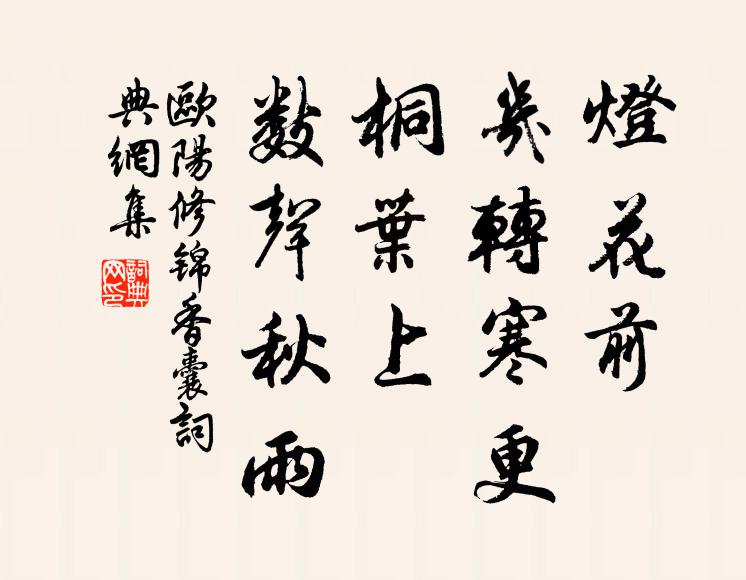 燈花前
幾轉寒更
桐葉上
數聲秋雨
歐陽修錦香囊詞
典網集
詞典網印